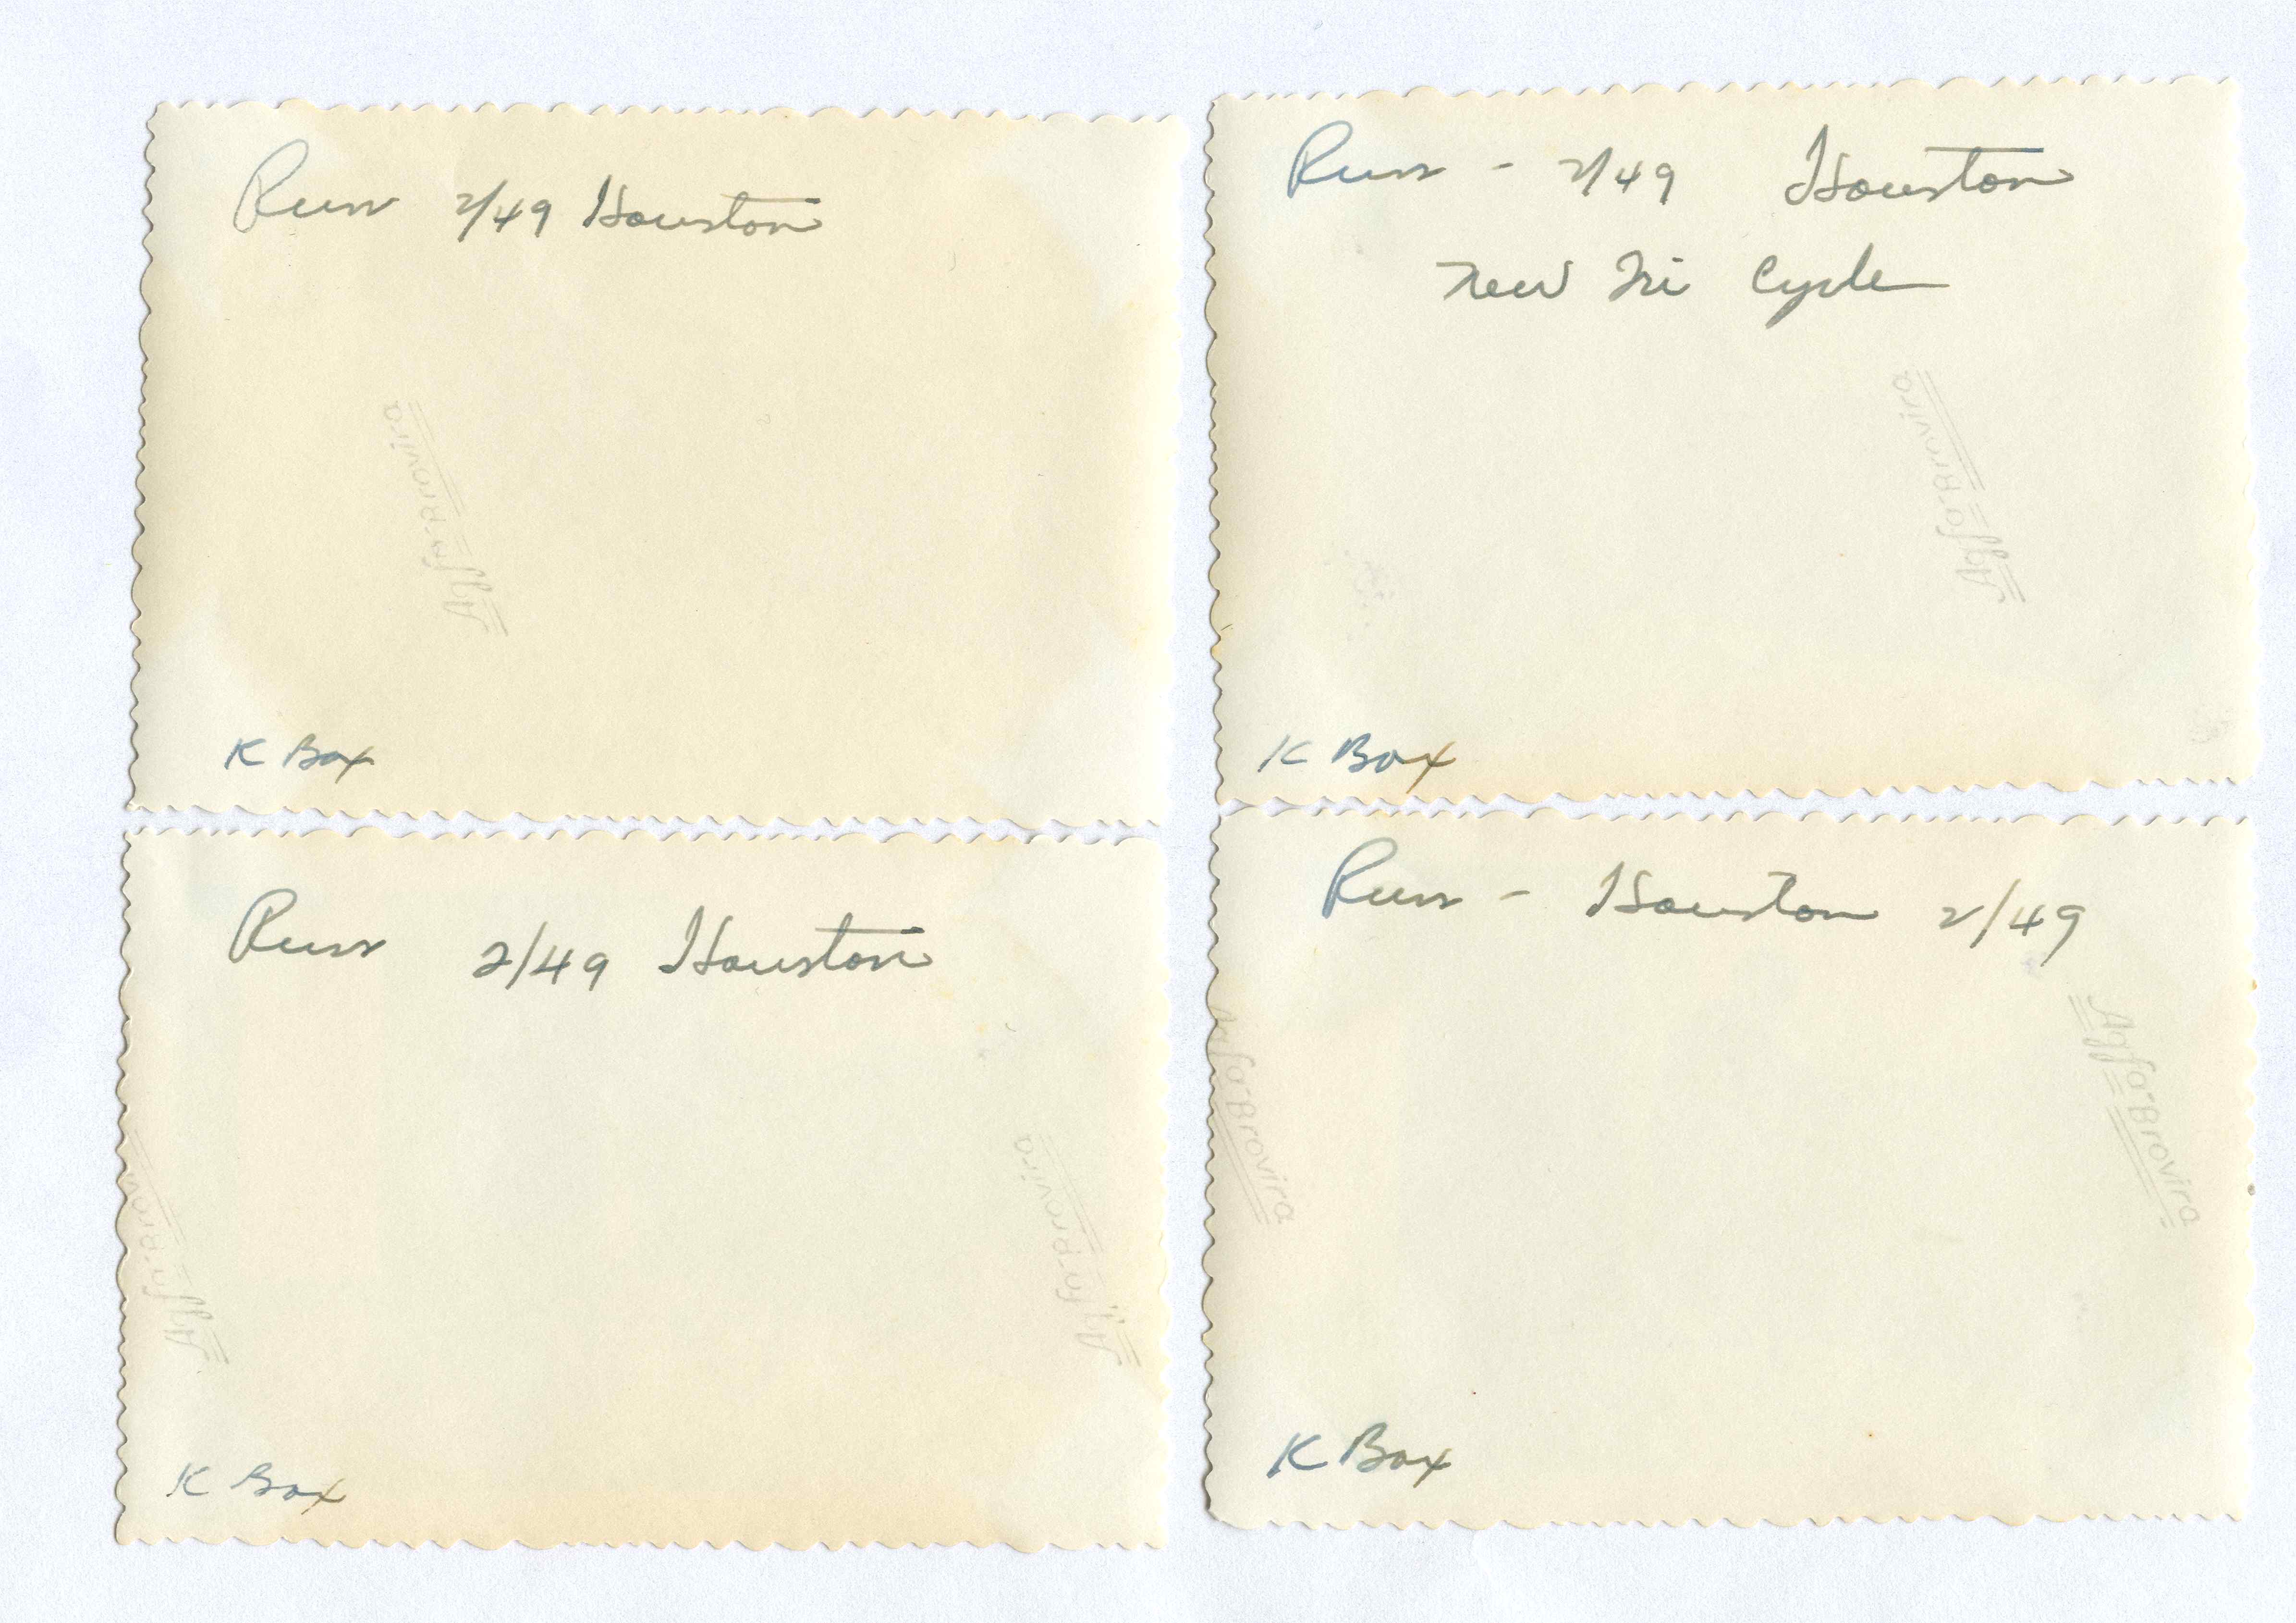 Russ 2/49 Houston
Agfa-Brovira
K Box
Russ - 2/49 Houston
New Tri Cycle
Agfa-Brovira
K Box
Russ 2/49 Houston
Agfa-Brovira
Agfa-Brovira
K Box
Russ - Houston 2/49
Agfa-Brovira
Agfa-Brovira
K Box